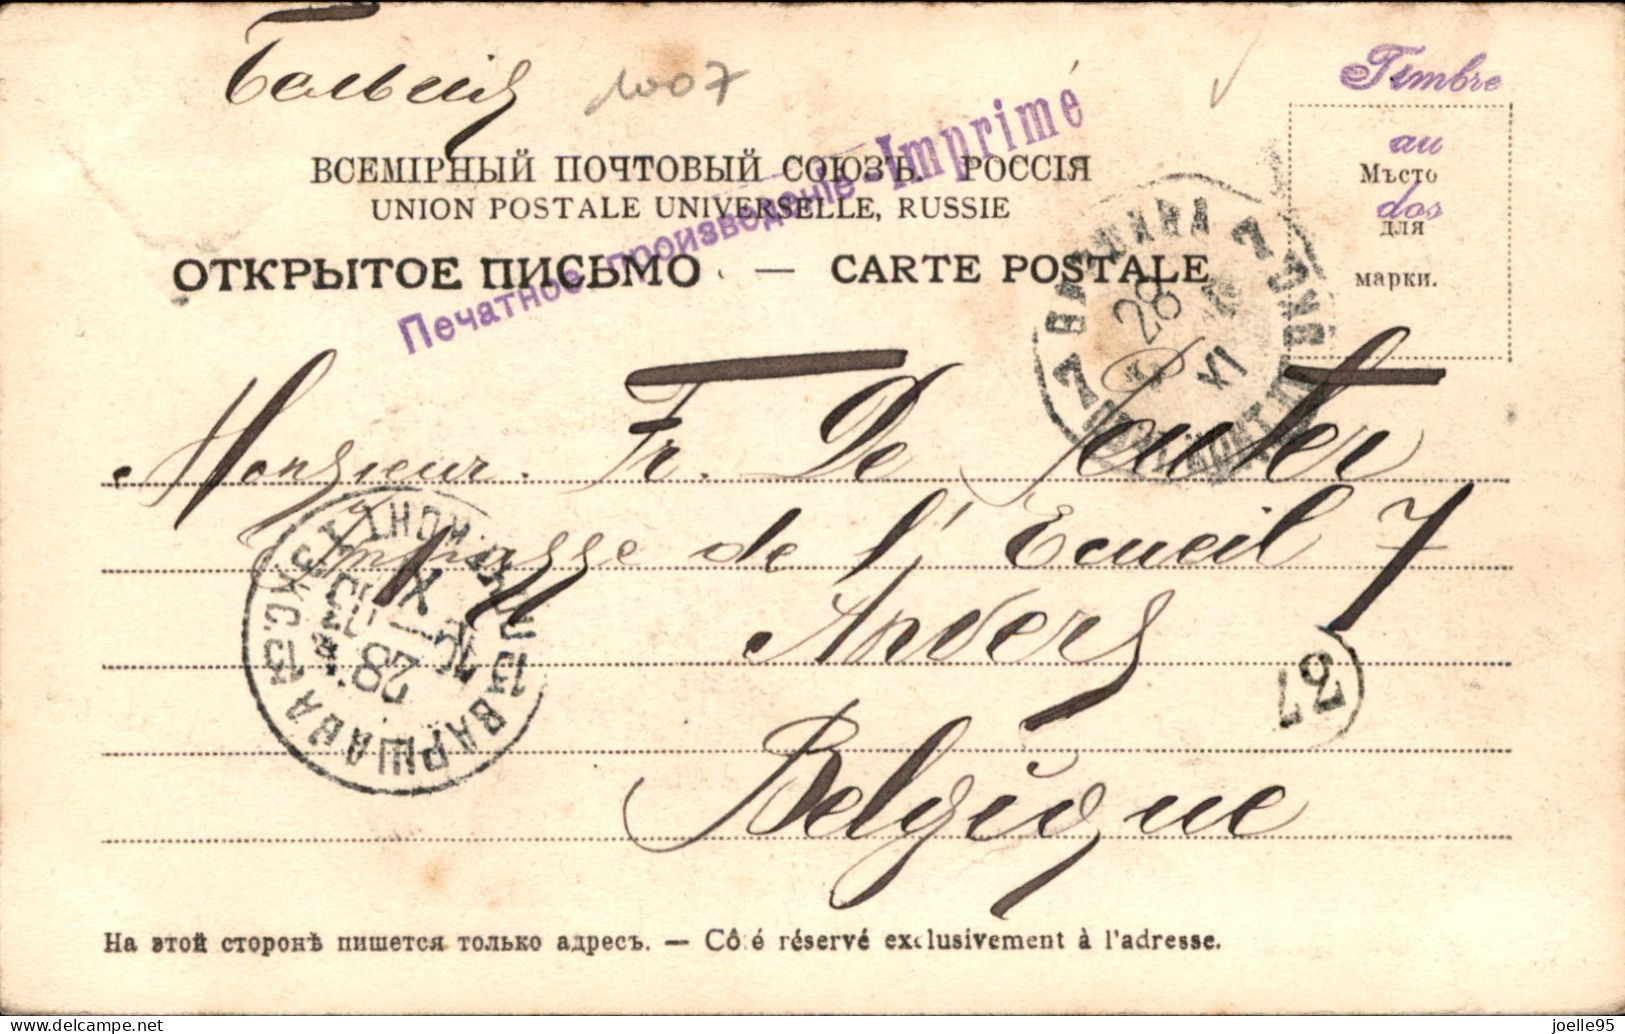 Бельгія
1007
Timbre
au
dos
Мѣсто
для
марки.
Печатное произведеніе - Imprimé
ВСЕМІРНЫЙ ПОЧТОВЫЙ СОЮЗЪ. РОССІЯ
UNION POSTALE UNIVERSELLE, RUSSIE
ОТКРЫТОЕ ПИСЬМО — CARTE POSTALE
7 ВАРШАВА 7
28
XI
Monsieur. Fr. De Souter
Impasse de l'Ecueil 7
Anvers
Belgique
ВАРШАВА 13
28
37
На этой сторонѣ пишется только адресъ. — Côté réservé exclusivement à l'adresse.
www.delcampe.net
joelle95